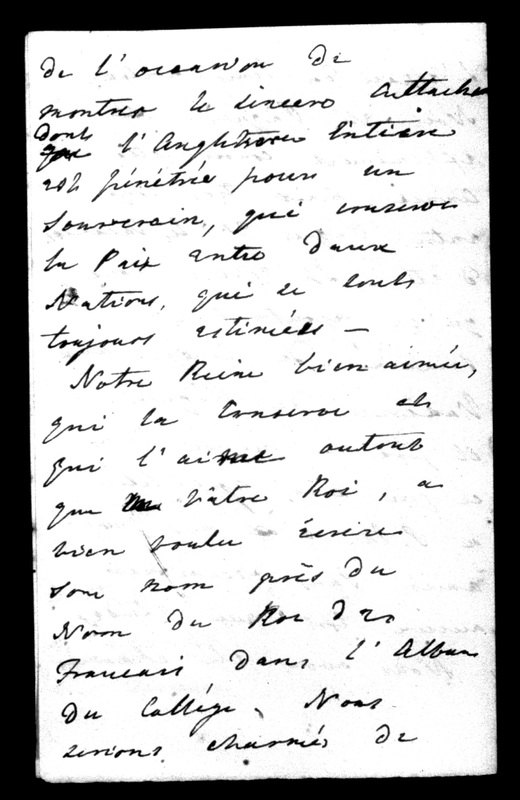 de l'occasion de
montrer le sincere attache
dont l'Angleterre Entiere
est pénétrée pour un
Souverain, qui conserve
la Paix entre deux
Nations, qui se sont
toujours estimées —
Notre Reine bien aimée,
qui la Conserve et
qui l'aime autant
que Vôtre Roi, a
bien voulu écrire
son nom près du
Nom du Roi des
Francais dans l'Album
du Collége. Nous
serions charmés de